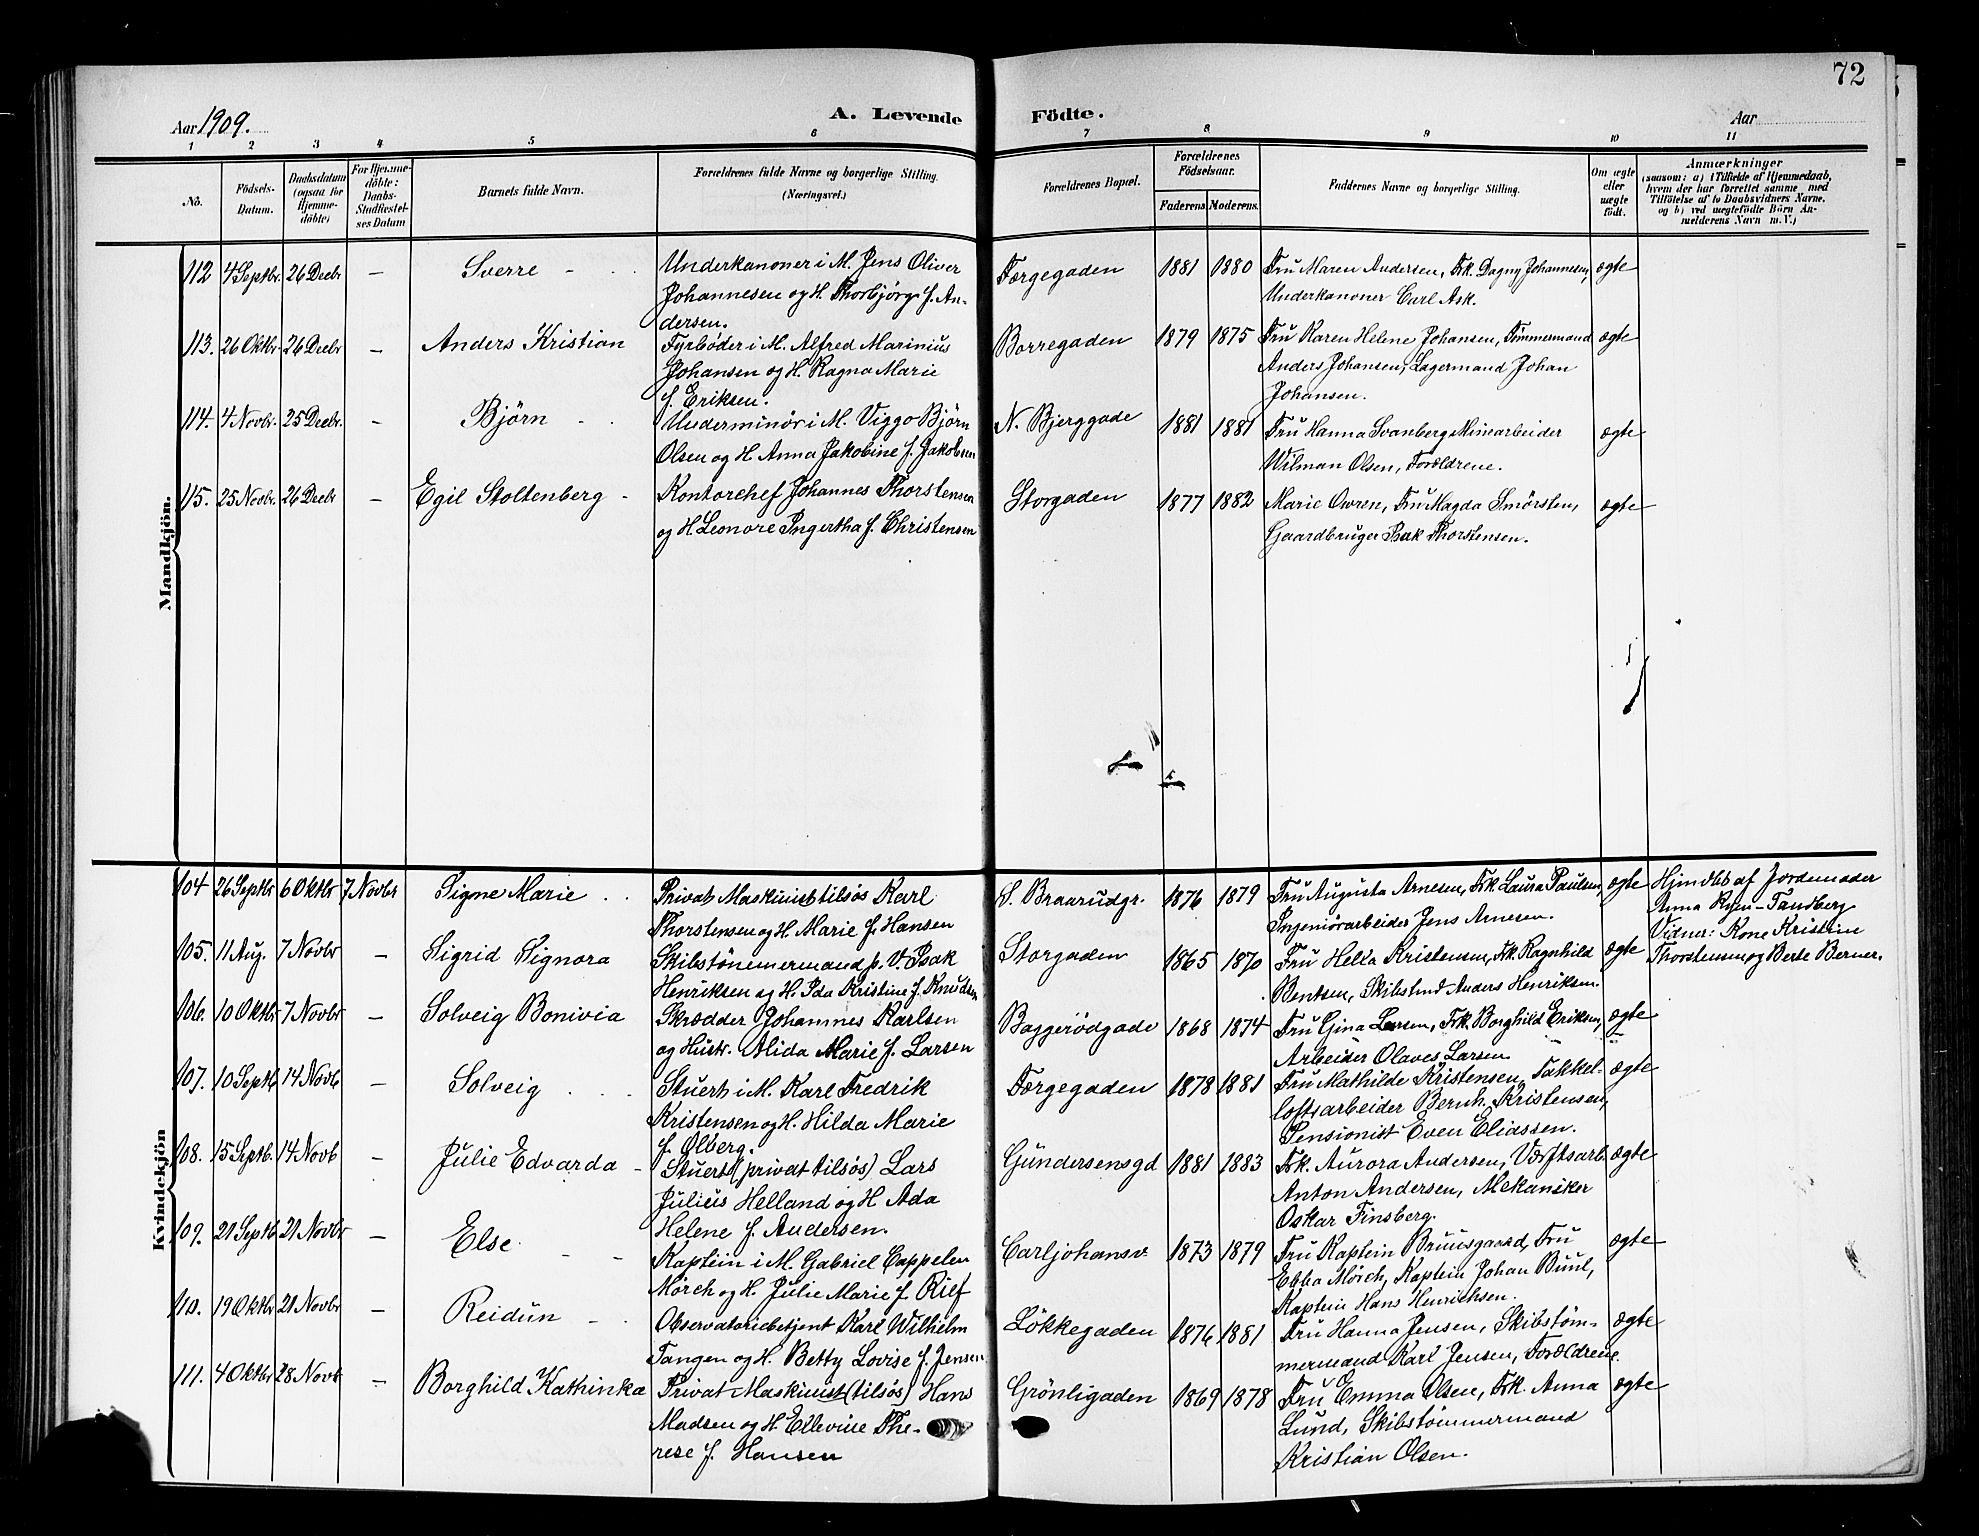 72
Aar 1909.
A. Levende Födte.
Aar
1 2 3 4 5 6 7 8 9 10 11
No.
Födsels-Datum.
Daabsdatum (ogsaa for Hjemme-döbte)
For Hjemme-döbte: Daabs-Stadfæstel-ses Datum
Barnets fulde Navn.
Forældrenes fulde Navne og borgerlige Stilling. (Næringsvei.)
Forældrenes Bopæl.
Forældrenes Födselsaar.
Faderens Moderens.
Faddernes Navne og borgerlige Stilling.
Om ægte eller uægte födt.
Anmærkninger
(saasom: a) i Tilfælde af Hjemmedaab, hvem der har forrettet samme, med Tilföielse af to Daabsvidners Navne, og b) ved uægtefödte Börn An-melderens Navn m. V.)
Mandkjön.
112 4 Septbr. 26 Decbr — Sverre Underkanoner i M. Jens Oliver Færgegaden 1881 1880 Fru Maren Andersen, Frk. Dagny Johannesen, ægte
Johannesen og H. Thorbjørg f. An- Underkanoner Carl Ask.
dersen.
113. 26 Oktbr 26 Decbr — Anders Kristian Fyrbøder i M. Alfred Marinius Borregaden 1879 1875 Fru Karen Helene Johansen, Tømmermand ægte
Johansen og H. Ragna Marie Anders Johansen, Lagermand Johan
f. Eriksen. Johansen.
114. 4 Novbr. 25 Decbr. — Bjørn Underminör i M. Viggo Bjørn N. Bjerggade 1881 1881 Fru Hanna Svanberg, Minearbeider ægte
Olsen og H. Anna Jakobine f. Jakobsen Wilman Olsen, Forældrene.
115. 25 Novbr. 26 Decbr — Egil Stoltenberg Kontorchef Johannes Thorstensen Storgaden 1877 1882 Marie Owren, Fru Magda Smørsten, ægte
og H. Leonore Ingertha f. Christensen Gaardbruger Isak Thorstensen.
Kvindekjön
104 26 Septbr 6 Oktbr 7 Novbr Signe Marie Privat Maskinist tilsøs Karl S. Braarudgr. 1876 1879 Fru Augusta Arnesen, Frk. Laura Paulsen, ægte Hjmdbt af Jordemoder
Thorstensen og H. Marie f. Hansen Ingeniörarbeider Jens Arnesen. Anna Ryen-Tandberg
105. 11 Aug. 7 Novbr — Sigrid Signora Skibstömmermand p. V. Isak Storgaden 1865 1870 Fru Hella Kristensen, Frk. Ragnhild ægte Vidner: Kone Kristine
Henriksen og H. Ida Kristine f. Knudsen Bentsen, Skibstmd Anders Henriksen. Thorstensen og Berte Berner.
106. 10 Oktbr 7 Novbr — Solveig Bonivia Skrædder Johannes Karlsen Baggerödgade 1868 1874 Fru Gina Larsen, Frk. Borghild Eriksen, ægte
og Hustr. Alida Marie f. Larsen Arbeider Olaves Larsen
107. 10 Septb 14 Novb — Solveig Stuert i M. Karl Fredrik Færgegaden 1878 1881 Fru Mathilde Kristensen, Takkel- ægte
Kristensen og H. Hilda Marie loftsarbeider Bernh. Kristensen,
f. Ølberg. Pensionist Even Eliassen.
108. 15 Septb. 14 Novb — Julie Edvarda Stuert (privat tilsøs) Lars Gundersensgd 1881 1883 Frk. Aurora Andersen, Værftsarb. ægte
Julius Helland og H. Ada Anton Andersen, Mekaniker
Helene f. Andersen. Oskar Finsberg.
109. 21 Septb 21 Novbr — Else Kaptein i M. Gabriel Cappelen Carljohansv. 1873 1879 Fru Kaptein Bruusgaard, Fru ægte
Mörch og H. Julie Marie f. Rief Ebba Mörch, Kaptein Johan Buul,
Kaptein Hans Henrichsen.
110. 19 Oktbr 21 Novbr — Reidun Observatoriebetjent Karl Wilhelm Lökkegaden 1876 1881 Fru Hanna Jensen, Skibstøm- ægte
Tangen og H. Betty Lovise f. Jensen mermand Karl Jensen, Forældrene.
111. 4 Oktbr 28 Novb — Borghild Kathinka Privat Maskinist (tilsøs) Hans Grönligaden 1869 1878 Fru Emma Olsen, Frk. Anna ægte
Madsen og H. Ellevine The- Lund, Skibstömmermand
rese f. Hansen Kristian Olsen.